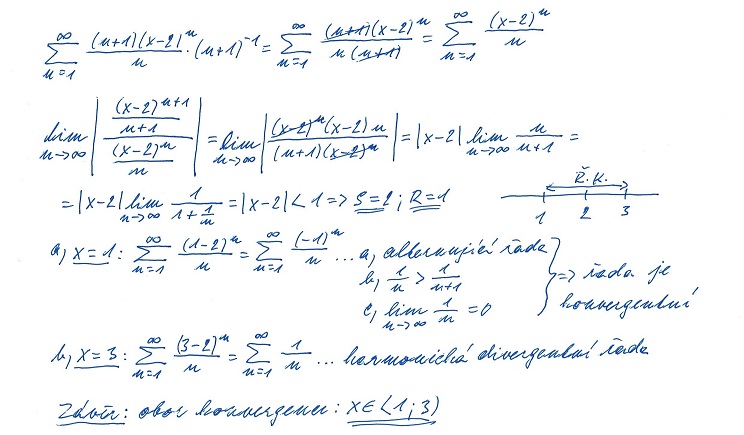 ∑_{n=1}^{∞} (n+1)(x-2)^n / n · (n+1)^{-1} = ∑_{n=1}^{∞} (n+1)(x-2)^n / n(n+1) = ∑_{n=1}^{∞} (x-2)^n / n
lim_{n→∞} | ((x-2)^{n+1} / (n+1)) / ((x-2)^n / n) | = lim_{n→∞} | (x-2)^n (x-2) n / (n+1)(x-2)^n | = |x-2| lim_{n→∞} n / (n+1) =
= |x-2| lim_{n→∞} 1 / (1 + 1/n) = |x-2| < 1 => S=2; R=1
Ř.K.
1 2 3
a, x=1: ∑_{n=1}^{∞} (1-2)^n / n = ∑_{n=1}^{∞} (-1)^n / n ... a, alternující řada
b, 1/n > 1/(n+1)
c, lim_{n→∞} 1/n = 0
} => řada je konvergentní
b, x=3: ∑_{n=1}^{∞} (3-2)^n / n = ∑_{n=1}^{∞} 1/n ... harmonická divergentní řada
Závěr: obor konvergence: x∈<1;3)